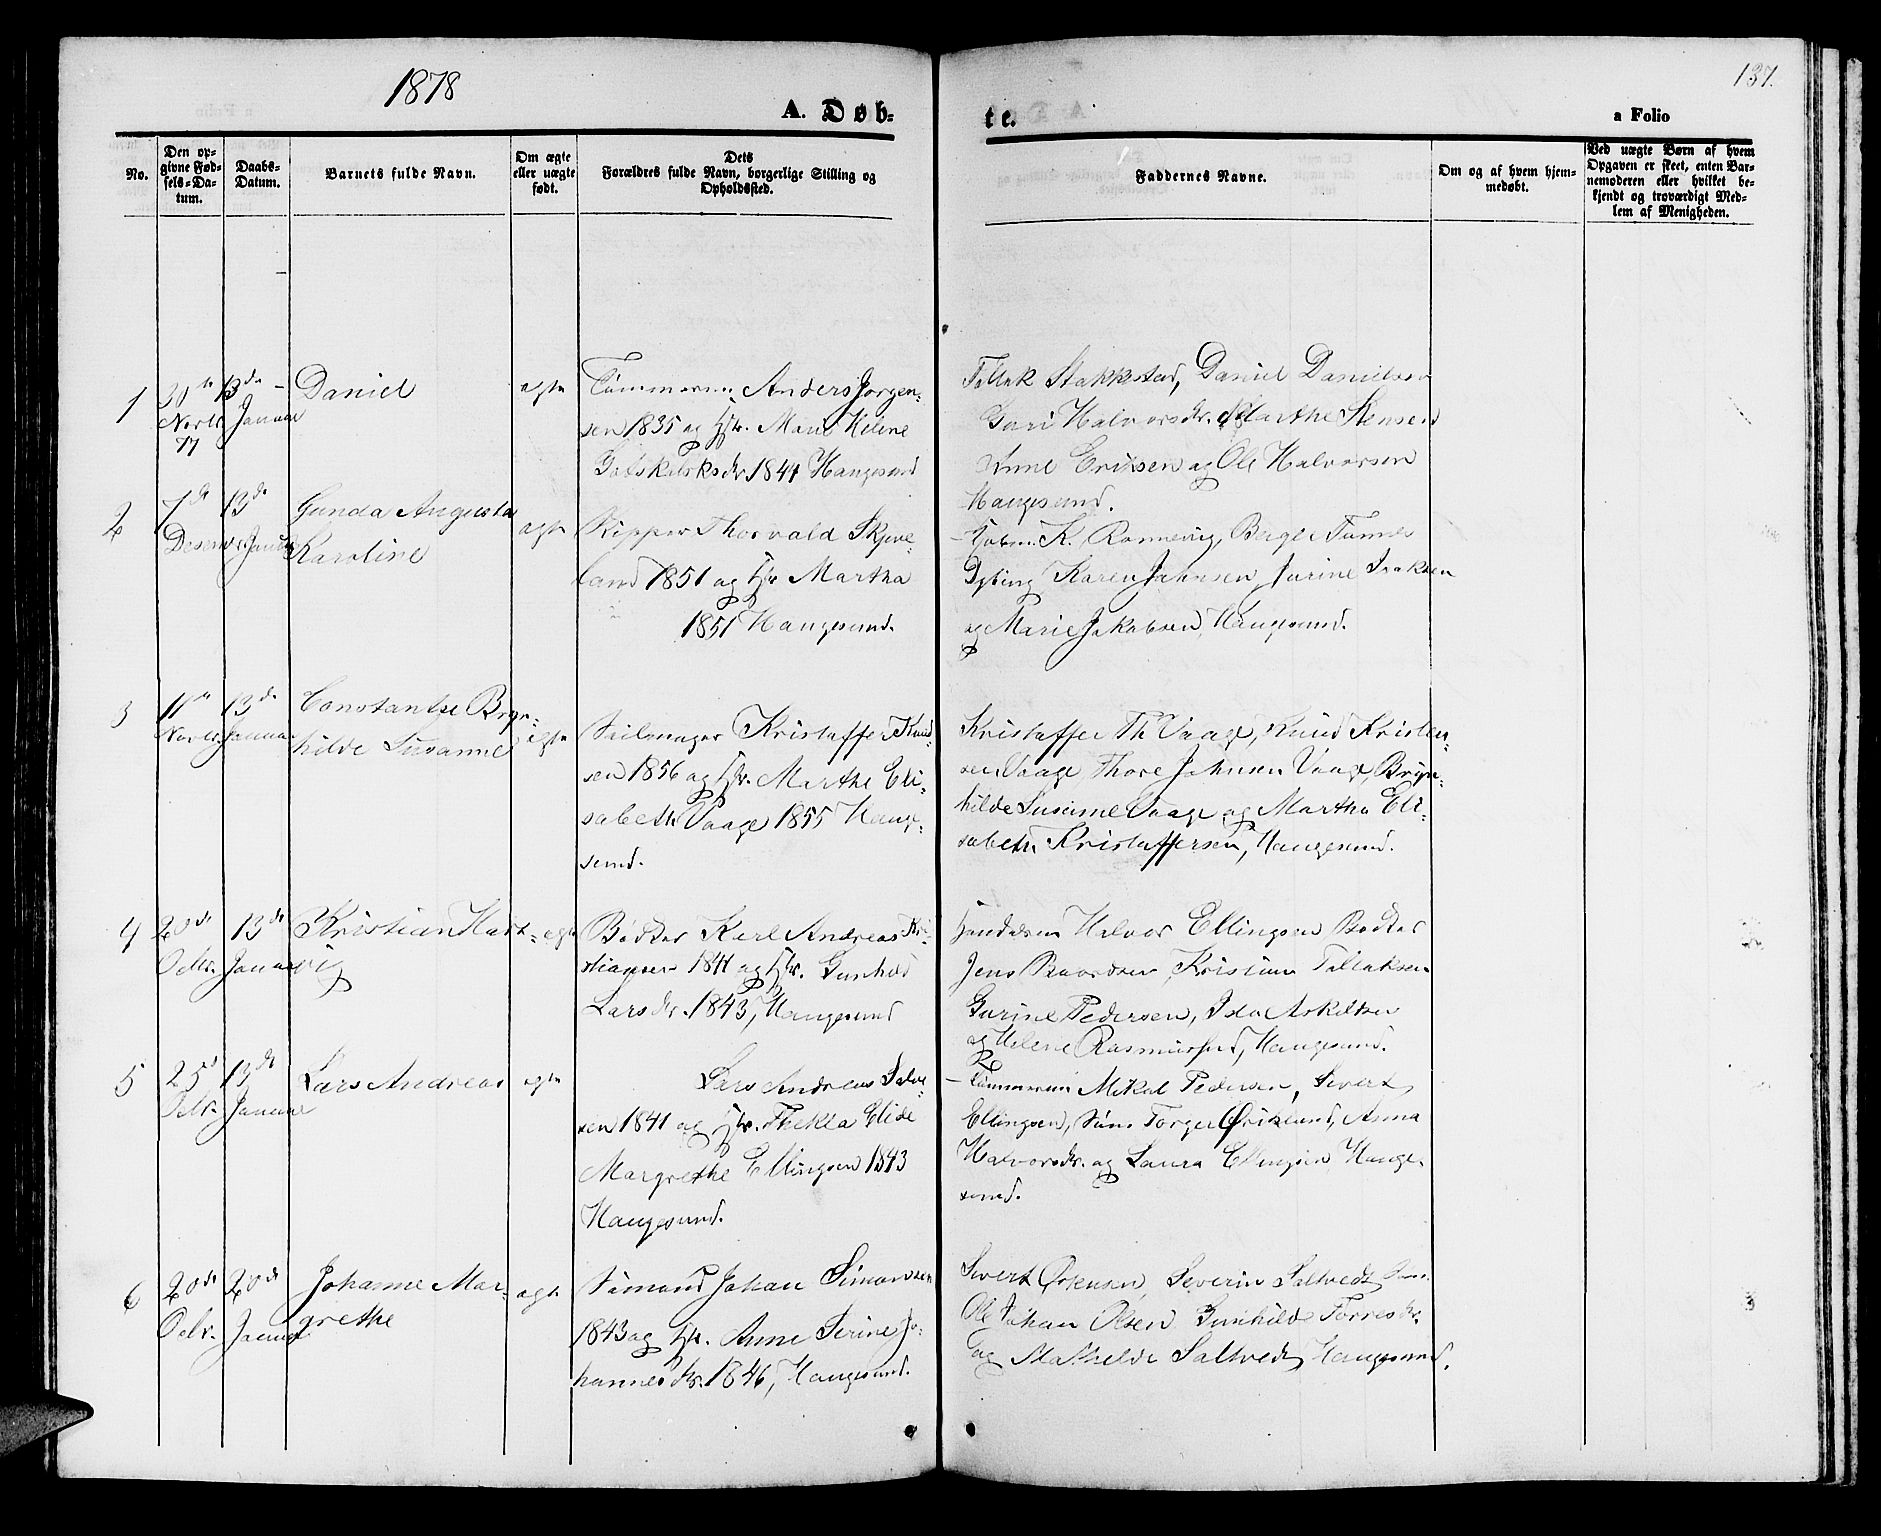 1878
137.
A. Døb-
te.
a Folio
No.
Den op-
givne Fød-
sels-Da-
tum.
Daabs-
Datum.
Barnets fulde Navn.
Om ægte
eller uægte
født.
Dets
Forældres fulde Navn, borgerlige Stilling og
Opholdssted.
Faddernes Navne.
Om og af hvem hjem-
medøbt.
Ved uægte Børn af hvem
Opgaven er skeet, enten Bar-
nemoderen eller hvilket be-
kjendt og troværdigt Med-
lem af Menigheden.
1
30te
Novbr
77
13de
Januar
Daniel
ægte
Tømmerm. Anders Jørgen-
sen 1835 og Hstr. Maris Helene
1841 Haugesund
Stakkestad, Daniel Danielsen
Guri Halvorsdtr. Marthe Stensen
Anne Eriksen og Ole Halvorsen
Haugesund.
2
7de
13de
Januar
Gunda Augusta
Karoline
ægte
Skipper Thorvald Skjve-
land 1851 og Hstr Martha
1851 Haugesund.
K. Rønnevig, Berge Tønnes
Karen Johnsen Jurine Isaksen
og Marie Jakobsen, Haugesund.
3
11te
Novbr
13de
Januar
Constantse Bryn-
hilde Susanne
ægte
Seilmager Kristoffer Knud-
sen 1856 og Hstr. Marthe Eli-
sabeth Vaage 1855 Hauge-
sund.
Kristoffer Th Vaage, Knud Kristen-
sen Vaage Thore Johnsen Vaage, Bryn-
hilde Susanne Vaage og Martha Eli-
sabeth Kristoffersen, Haugesund.
4
20de
Octbr.
13de
Januar
Kristian Hart-
vig
ægte
Bødker Karl Andreas Kri-
stiansen 1841 og Hstr. Gunhild
Larsdtr. 1843, Haugesund
Halvor Ellingsen Bødker
Jens Baardsen, Kristian Tollaksen
Gurine Pedersen, Ida Askildsen
og Helene Rasmussen, Haugesund.
5
25d
Octbr.
13de
Januar
Lars Andreas
ægte
Lars Andreas Salve-
sen 1841 og Hstr. Thekla Elide
Margrethe Ellingsen 1843
Haugesund.
Tømmerm Mikal Pedersen, Sivert
Ellingsen, Torger Anna
Halvorsdtr. og Laura Ellingsen Hauge-
sund.
6
20de
Octbr.
20de
Januar
Johanne Mar-
grethe
ægte
Sømand Johan Simonsen
1843 og Hstr. Anne Serine Jo-
hannesdtr. 1846, Haugesund.
Sivert Severin Saltvedt
Ole Johan Olsen Gunhilde Torresdtr.
og Mathilde Saltvedt Haugesund.